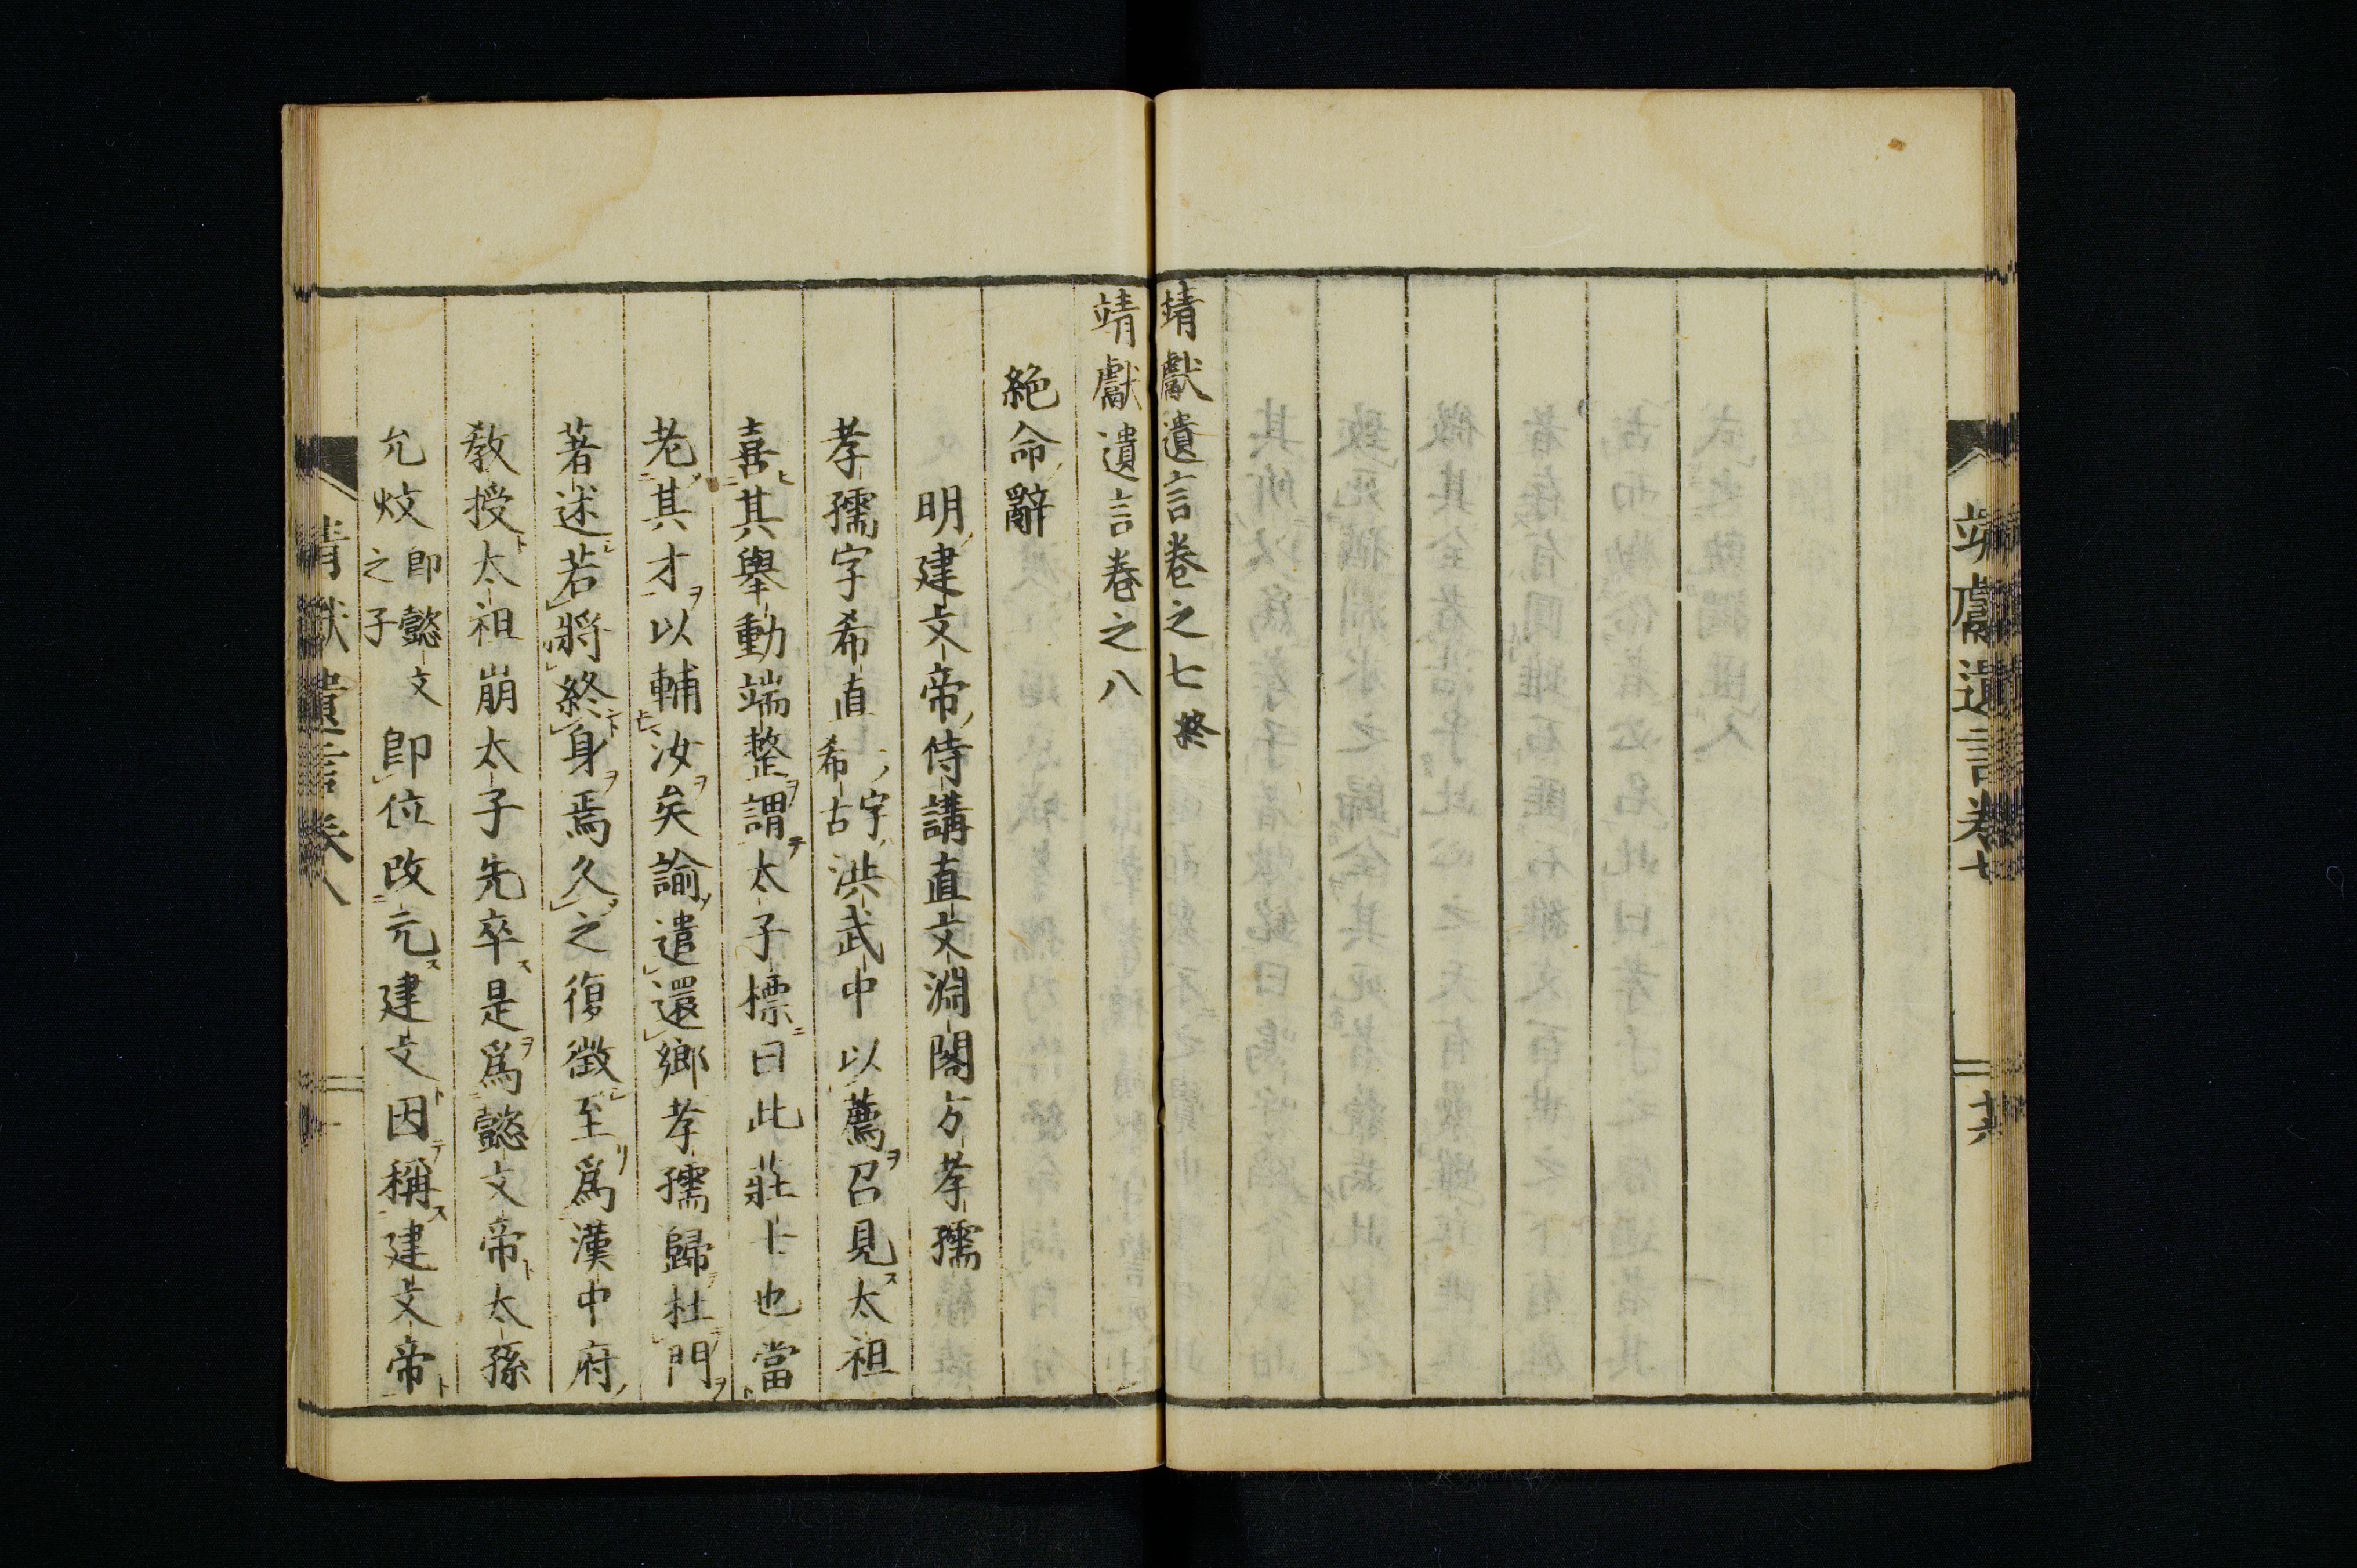 靖獻遺言卷七
十六
靖獻遺言卷之七終
靖獻遺言卷之八
絶命辭
明建文帝侍講直文淵閣方孝孺
孝孺字希直一字希古洪武中以薦召見太祖
喜其舉動端整謂太子標曰此莊士也當
老其才以輔汝矣諭遣還鄉孝孺歸杜門
著述若將終身焉久之復徵至爲漢中府
敎授太祖崩太子先卒是爲懿文帝太孫
允炆即懿文之子即位改元建文因稱建文帝
靖獻遺言卷八